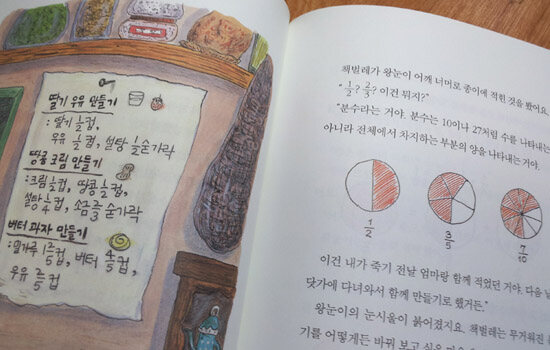 딸기 우유 만들기
: 딸기 1/2컵,
우유 1/2컵, 설탕 1/2숟가락
땅콩 크림 만들기
: 크림 1/2컵, 땅콩 1/2컵,
설탕 1/4컵, 소금 2/3 숟가락
버터 과자 만들기
: 밀가루 컵, 버터 4/5컵,
우유 컵
책벌레가 왕눈이 어깨 너머로 종이에 적힌 것을 봤어요.
"1/2? 2/3? 이건 뭐지?"
"분수라는 거야. 분수는 10이나 27처럼 수를 나타내는
아니라 전체에서 차지하는 부분의 양을 나타내는 거야.
1/2 3/5 7/10
이건 내가 죽기 전날 엄마랑 함께 적었던 거야. 다음
닷가에 다녀와서 함께 만들기로 했거든."
왕눈이의 눈시울이 붉어졌지요. 책벌레는 무거워진
기를 어떻게든 바꿔 보고